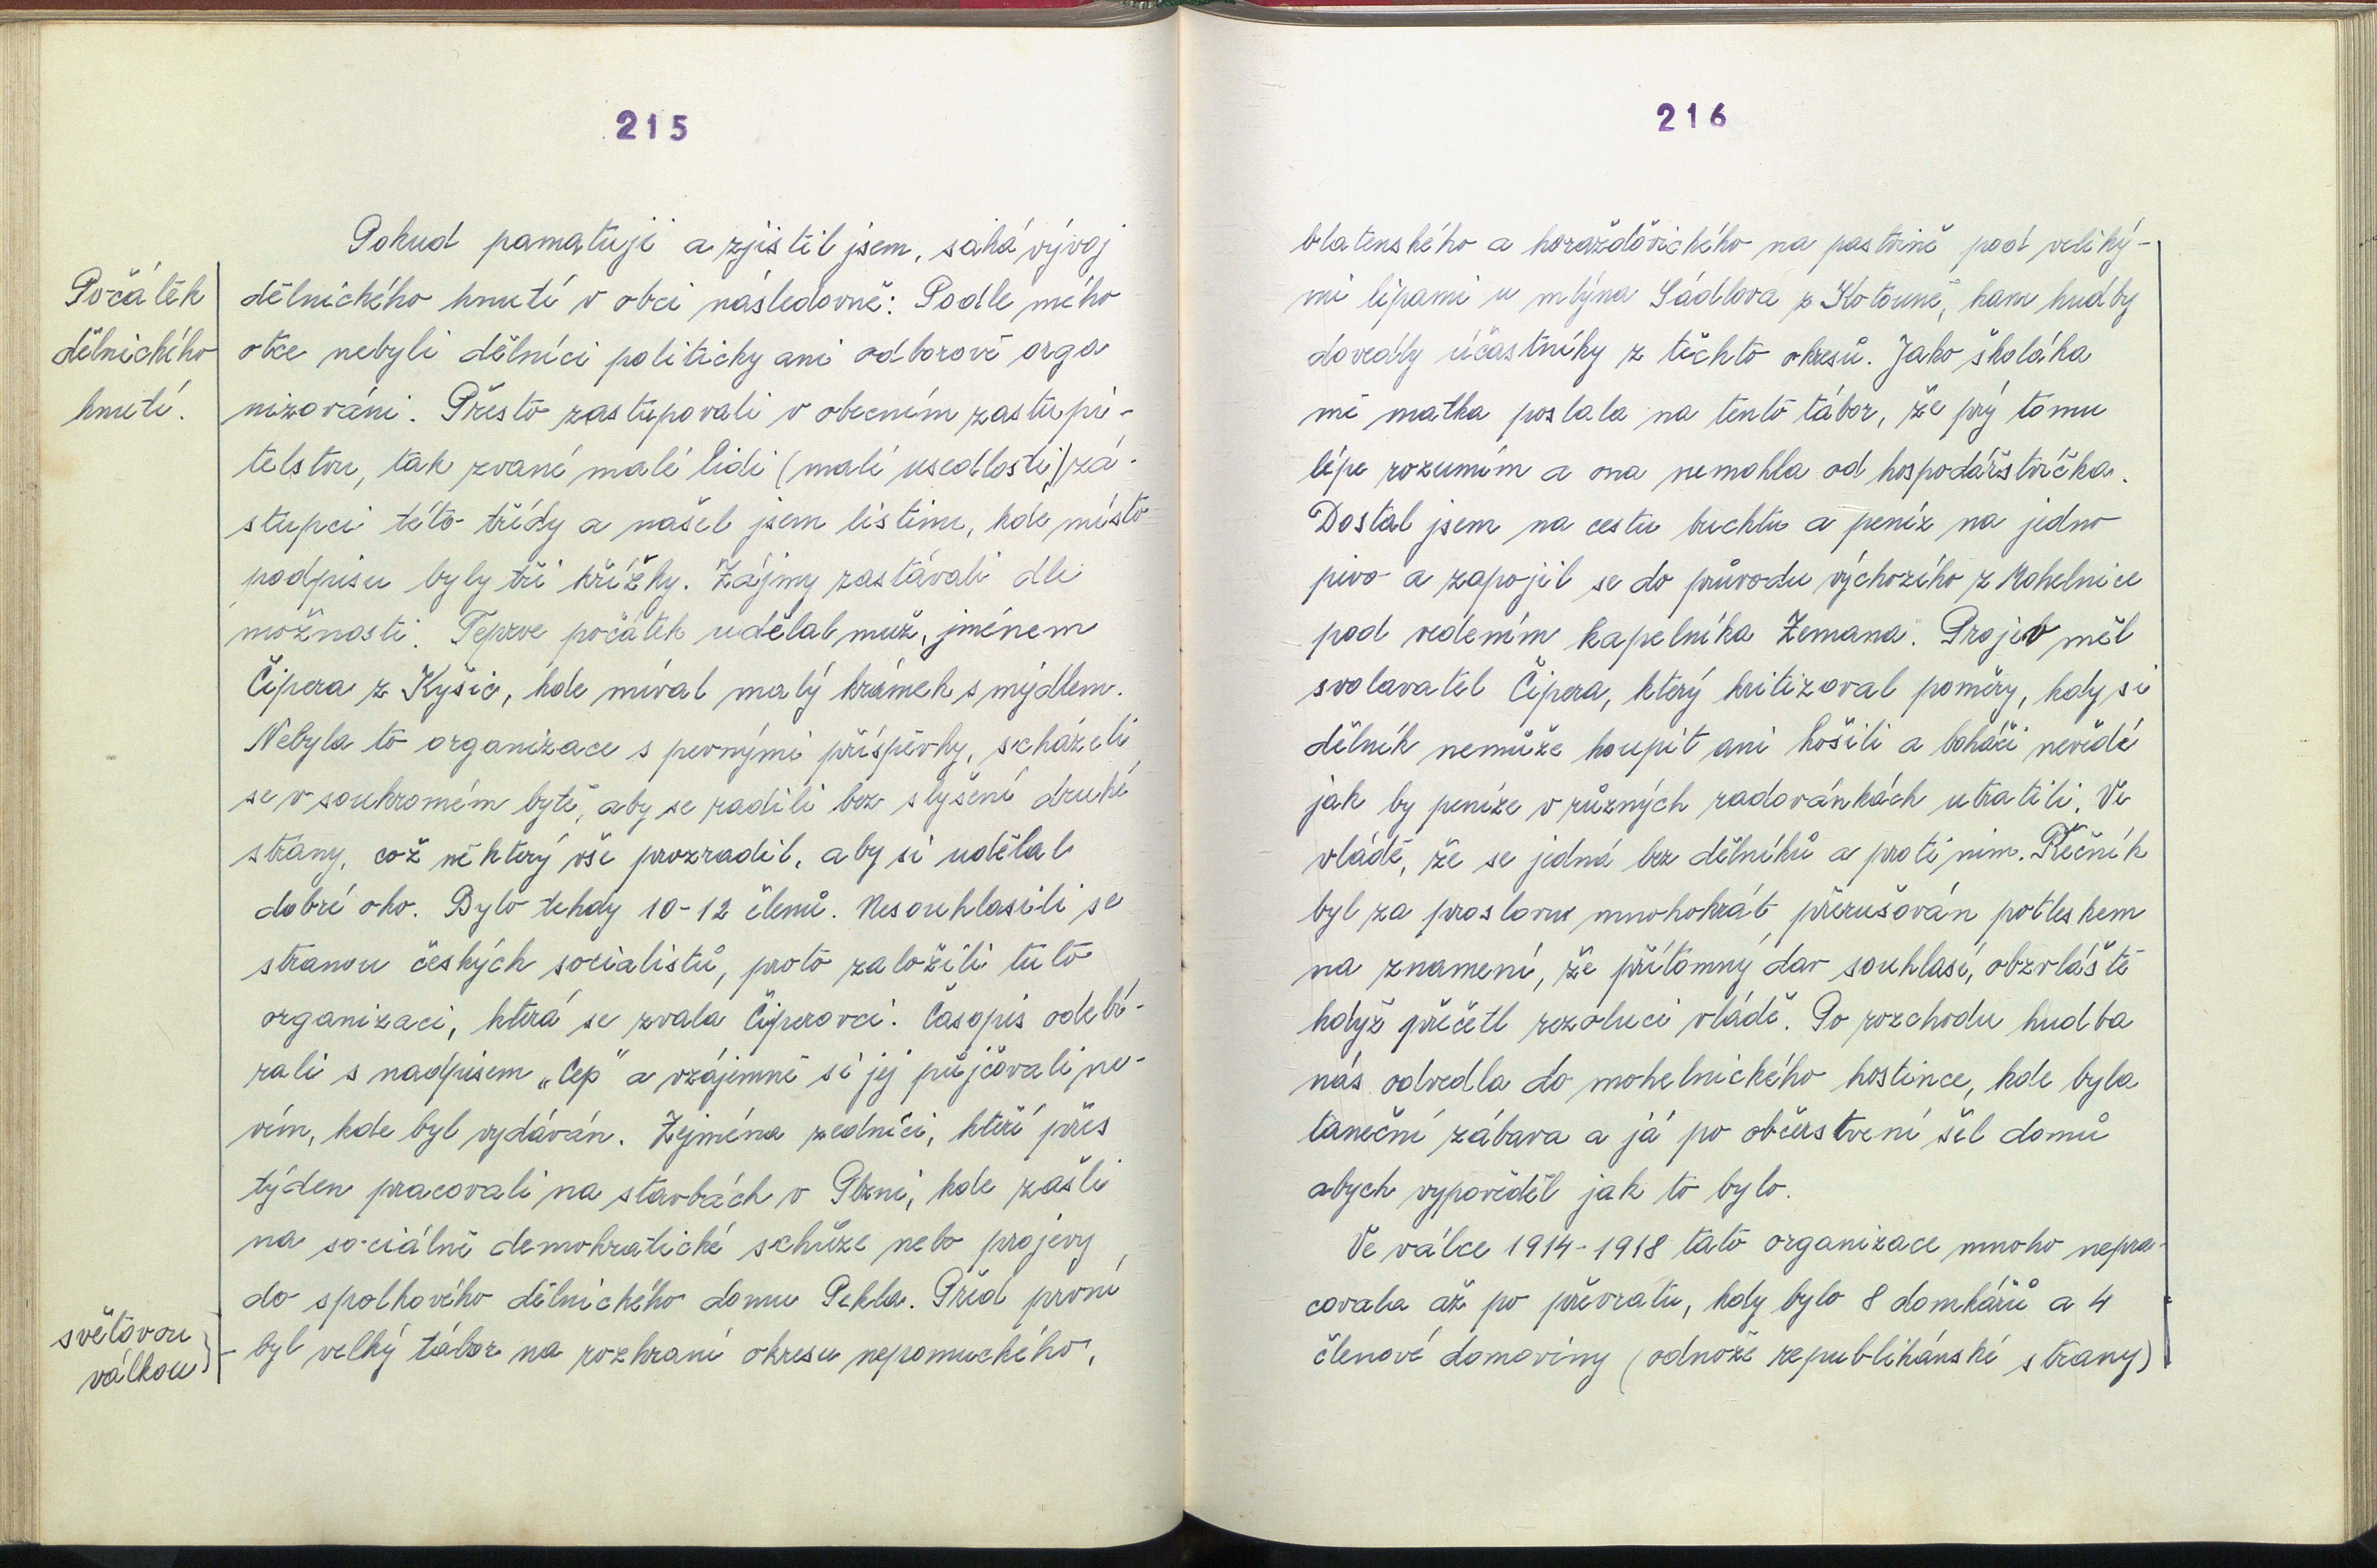 215
Počátek
dělnického
hnutí.
Pokud pamatuji a zjistil jsem, sahá vývoj
dělnického hnutí v obci následovně: Podle mého
otce nebyli dělníci politicky ani odborově orga
nizováni. Přesto zastupovali v obecním zastupi-
telstvu, tak zvané malé lidi (malé usedlosti) zá-
stupci této třídy a našel jsem listinu, kde místo
podpisu byly tři křížky. Zájmy zastávali dle
možnosti. Teprve počátek udělal muž, jménem
Čipera z Kyšic, kde míval malý krámek s mýdlem.
Nebyla to organizace s pevnými příspěvky, scházeli
se v soukromém bytě, aby se radili bez slyšení druhé
strany, což některý vše prozradil, aby si udělal
dobré oko. Bylo tehdy 10-12 členů. Nesouhlasili se
stranou českých socialistů, proto založili tuto
organizaci, která se zvala Čiperovci. Časopis odebí-
rali s nadpisem „Cep" a vzájemně si jej půjčovali ne-
vím, kde byl vydáván. Zejména zedníci, kteří přes
týden pracovali na stavbách v Plzni, kde zašli
na sociálně demokratické schůze nebo projevy
do spolkového dělnického domu Pekla. Před první
světovou
válkou}
byl velký tábor na rozhraní okresu nepomuckého,
216
blatenského a horažďovického na pastvině pod veliký-
mi lípami u mlýna Sádlova z Kotouně, kam hudby
dovedly účastníky z těchto okresů. Jako školáka
mě matka poslala na tento tábor, že prý tomu
lépe rozumím a ona nemohla od hospodářstvíčka.
Dostal jsem na cestu buchtu a peníz na jedno
pivo a zapojil se do průvodu výchozího z Mohelnice
pod vedením kapelníka Zemana. Projev měl
svolavatel Čipera, který kritizoval poměry, kdy si
dělník nemůže koupit ani košili a boháči nevědí
jak by peníze v různých radovánkách utratili. Ve
vládě, že se jedná bez dělníků a proti nim. Řečník
byl za proslovu mnohokrát přerušován potleskem
na znamení, že přítomný dav souhlasí, obzvláště
když přečetl rezoluci vládě. Po rozchodu hudba
nás odvedla do mohelnického hostince, kde byla
taneční zábava a já po občerstvení šel domů
abych vypověděl jak to bylo.
Ve válce 1914-1918 tato organizace mnoho nepra-
covala až po převratu, kdy bylo 8 domkářů a 4
členové domoviny (odnože republikánské strany)